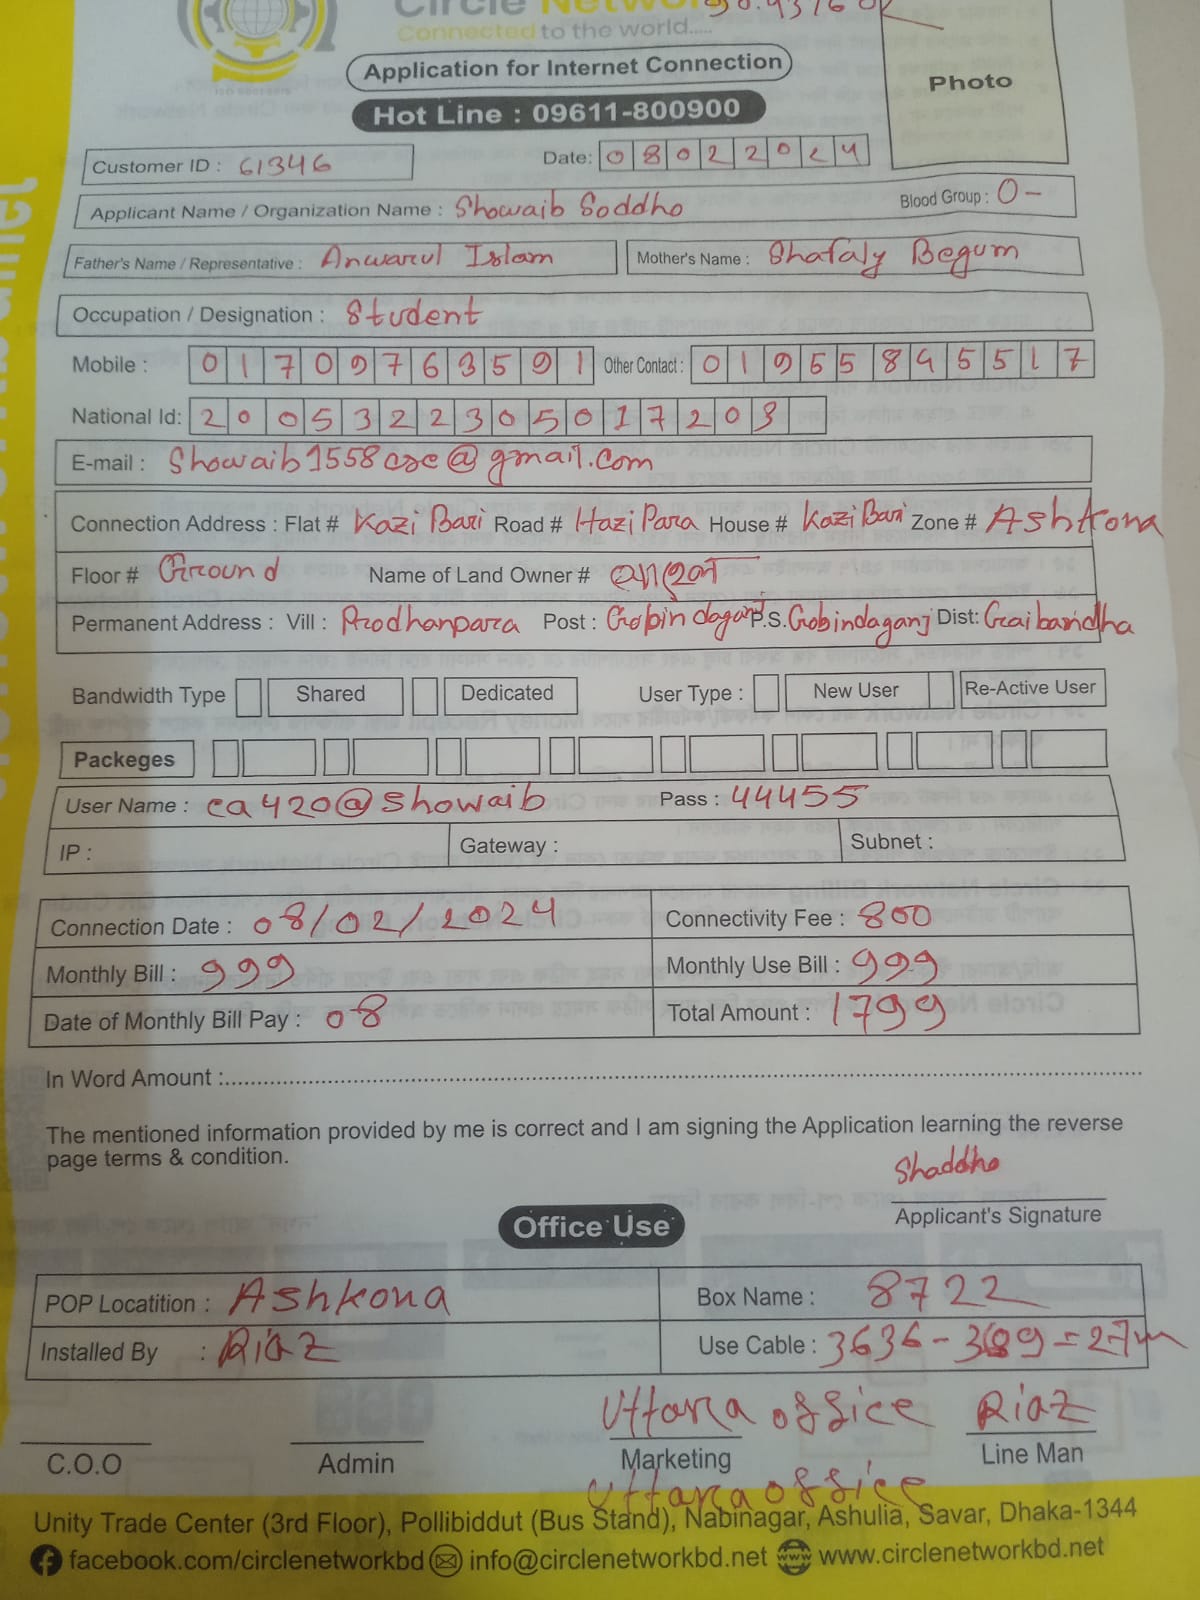 Circle Network
Connected to the world.....
ISO 9001:2015
Application for Internet Connection
Photo
Hot Line : 09611-800900
Customer ID : 61346 Date: 08022024
Applicant Name / Organization Name : Showaib Soddho Blood Group : O-
Father's Name / Representative : Anwarul Islam Mother's Name : Shafaly Begum
Occupation / Designation : Student
Mobile : 01709763591 Other Contact : 01955895517
National Id: 2005322305017203
E-mail : Showaib1558cse@gmail.com
Connection Address : Flat # Kazi Bari Road # Hazi Para House # Kazi Bari Zone # Ashkona
Floor # Ground Name of Land Owner #
Permanent Address : Vill : Prodhanpara Post : Gobindaganj P.S. Gobindaganj Dist: Gaibandha
Bandwidth Type Shared Dedicated User Type : New User Re-Active User
Packeges
User Name : ca420@showaib Pass : 44455
IP : Gateway : Subnet :
Connection Date : 08/02/2024 Connectivity Fee : 800
Monthly Bill : 999 Monthly Use Bill : 999
Date of Monthly Bill Pay : 08 Total Amount : 1799
In Word Amount :
The mentioned information provided by me is correct and I am signing the Application learning the reverse
page terms & condition.
Shaddho
Applicant's Signature
Office Use
POP Locatition : Ashkona Box Name : 8722
Installed By : Riaz Use Cable : 3636-3609=27m
Uttara office Riaz
C.O.O Admin Marketing Line Man
Uttara office
Unity Trade Center (3rd Floor), Pollibiddut (Bus Stand), Nabinagar, Ashulia, Savar, Dhaka-1344
facebook.com/circlenetworkbd info@circlenetworkbd.net www.circlenetworkbd.net